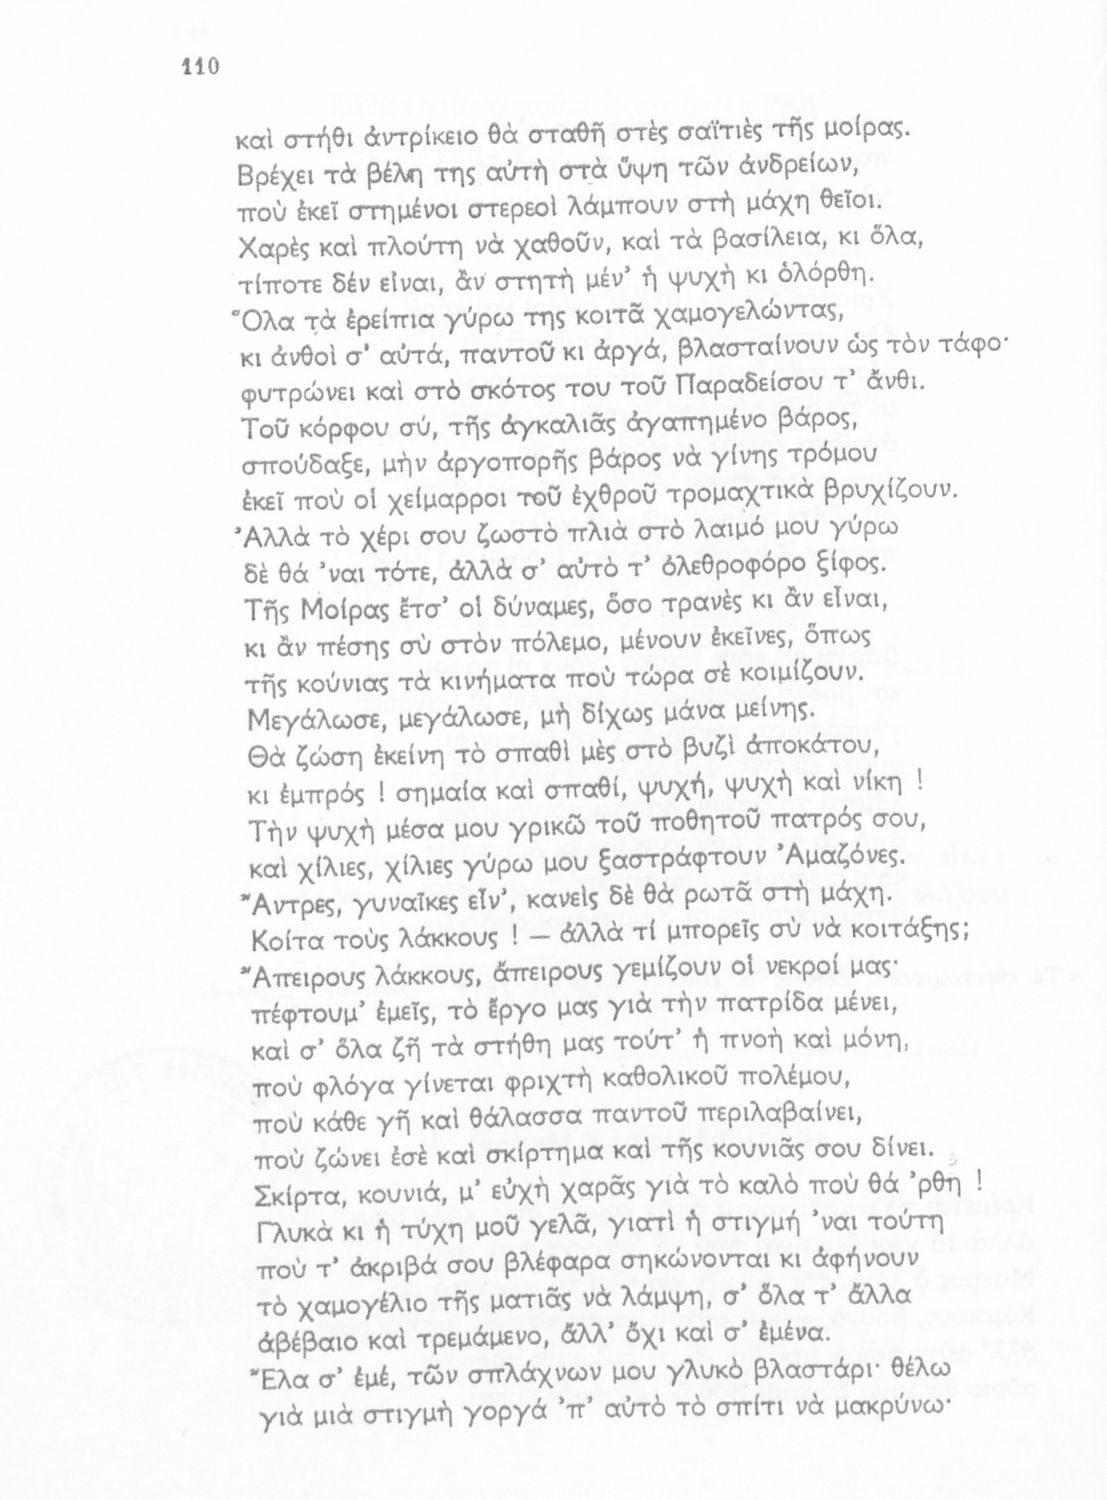 110
καὶ στήθι ἀντρίκειο θὰ σταθῆ στὲς σαϊτιὲς τῆς μοίρας.
Βρέχει τὰ βέλη της αὐτὴ στὰ ὕψη τῶν ἀνδρείων,
ποὺ ἐκεῖ στημένοι στερεοὶ λάμπουν στὴ μάχη θεῖοι.
Χαρὲς καὶ πλούτη νὰ χαθοῦν, καὶ τὰ βασίλεια, κι ὅλα,
τίποτε δέν εἶναι, ἂν στητὴ μέν' ἡ ψυχὴ κι ὁλόρθη.
Ὅλα τὰ ἐρείπια γύρω της κοιτᾶ χαμογελώντας,
κι ἀνθοὶ σ' αὐτά, παντοῦ κι ἀργά, βλασταίνουν ὡς τὸν τάφο·
φυτρώνει καὶ στὸ σκότος του τοῦ Παραδείσου τ' ἄνθι.
Τοῦ κόρφου σύ, τῆς ἀγκαλιᾶς ἀγαπημένο βάρος,
σπούδαξε, μὴν ἀργοπορῆς βάρος νὰ γίνης τρόμου
ἐκεῖ ποὺ οἱ χείμαρροι τοῦ ἐχθροῦ τρομαχτικὰ βρυχίζουν.
Ἀλλὰ τὸ χέρι σου ζωστὸ πλιὰ στὸ λαιμό μου γύρω
δὲ θά 'ναι τότε, ἀλλὰ σ' αὐτὸ τ' ὀλεθροφόρο ξίφος.
Τῆς Μοίρας ἔτσ' οἱ δύναμες, ὅσο τρανὲς κι ἂν εἶναι,
κι ἂν πέσης σὺ στὸν πόλεμο, μένουν ἐκεῖνες, ὅπως
τῆς κούνιας τὰ κινήματα ποὺ τώρα σὲ κοιμίζουν.
Μεγάλωσε, μεγάλωσε, μὴ δίχως μάνα μείνης.
Θὰ ζώση ἐκείνη τὸ σπαθὶ μὲς στὸ βυζὶ ἀποκάτου,
κι ἐμπρός ! σημαία καὶ σπαθί, ψυχή, ψυχὴ καὶ νίκη !
Τὴν ψυχὴ μέσα μου γρικῶ τοῦ ποθητοῦ πατρός σου,
καὶ χίλιες, χίλιες γύρω μου ξαστράφτουν Ἀμαζόνες.
Ἄντρες, γυναῖκες εἶν', κανεὶς δὲ θὰ ρωτᾶ στὴ μάχη.
Κοίτα τοὺς λάκκους ! — ἀλλὰ τί μπορεῖς σὺ νὰ κοιτάξης;
Ἄπειρους λάκκους, ἄπειρους γεμίζουν οἱ νεκροί μας·
πέφτουμ' ἐμεῖς, τὸ ἔργο μας γιὰ τὴν πατρίδα μένει,
καὶ σ' ὅλα ζῆ τὰ στήθη μας τούτ' ἡ πνοὴ καὶ μόνη,
ποὺ φλόγα γίνεται φριχτὴ καθολικοῦ πολέμου,
ποὺ κάθε γῆ καὶ θάλασσα παντοῦ περιλαβαίνει,
ποὺ ζώνει ἐσὲ καὶ σκίρτημα καὶ τῆς κουνιᾶς σου δίνει.
Σκίρτα, κουνιά, μ' εὐχὴ χαρᾶς γιὰ τὸ καλὸ ποὺ θά 'ρθη !
Γλυκὰ κι ἡ τύχη μοῦ γελᾶ, γιατὶ ἡ στιγμή 'ναι τούτη
ποὺ τ' ἀκριβά σου βλέφαρα σηκώνονται κι ἀφήνουν
τὸ χαμογέλιο τῆς ματιᾶς νὰ λάμψη, σ' ὅλα τ' ἄλλα
ἀβέβαιο καὶ τρεμάμενο, ἀλλ' ὄχι καὶ σ' ἐμένα.
Ἔλα σ' ἐμέ, τῶν σπλάχνων μου γλυκὸ βλαστάρι· θέλω
γιὰ μιὰ στιγμὴ γοργά 'π' αὐτὸ τὸ σπίτι νὰ μακρύνω·